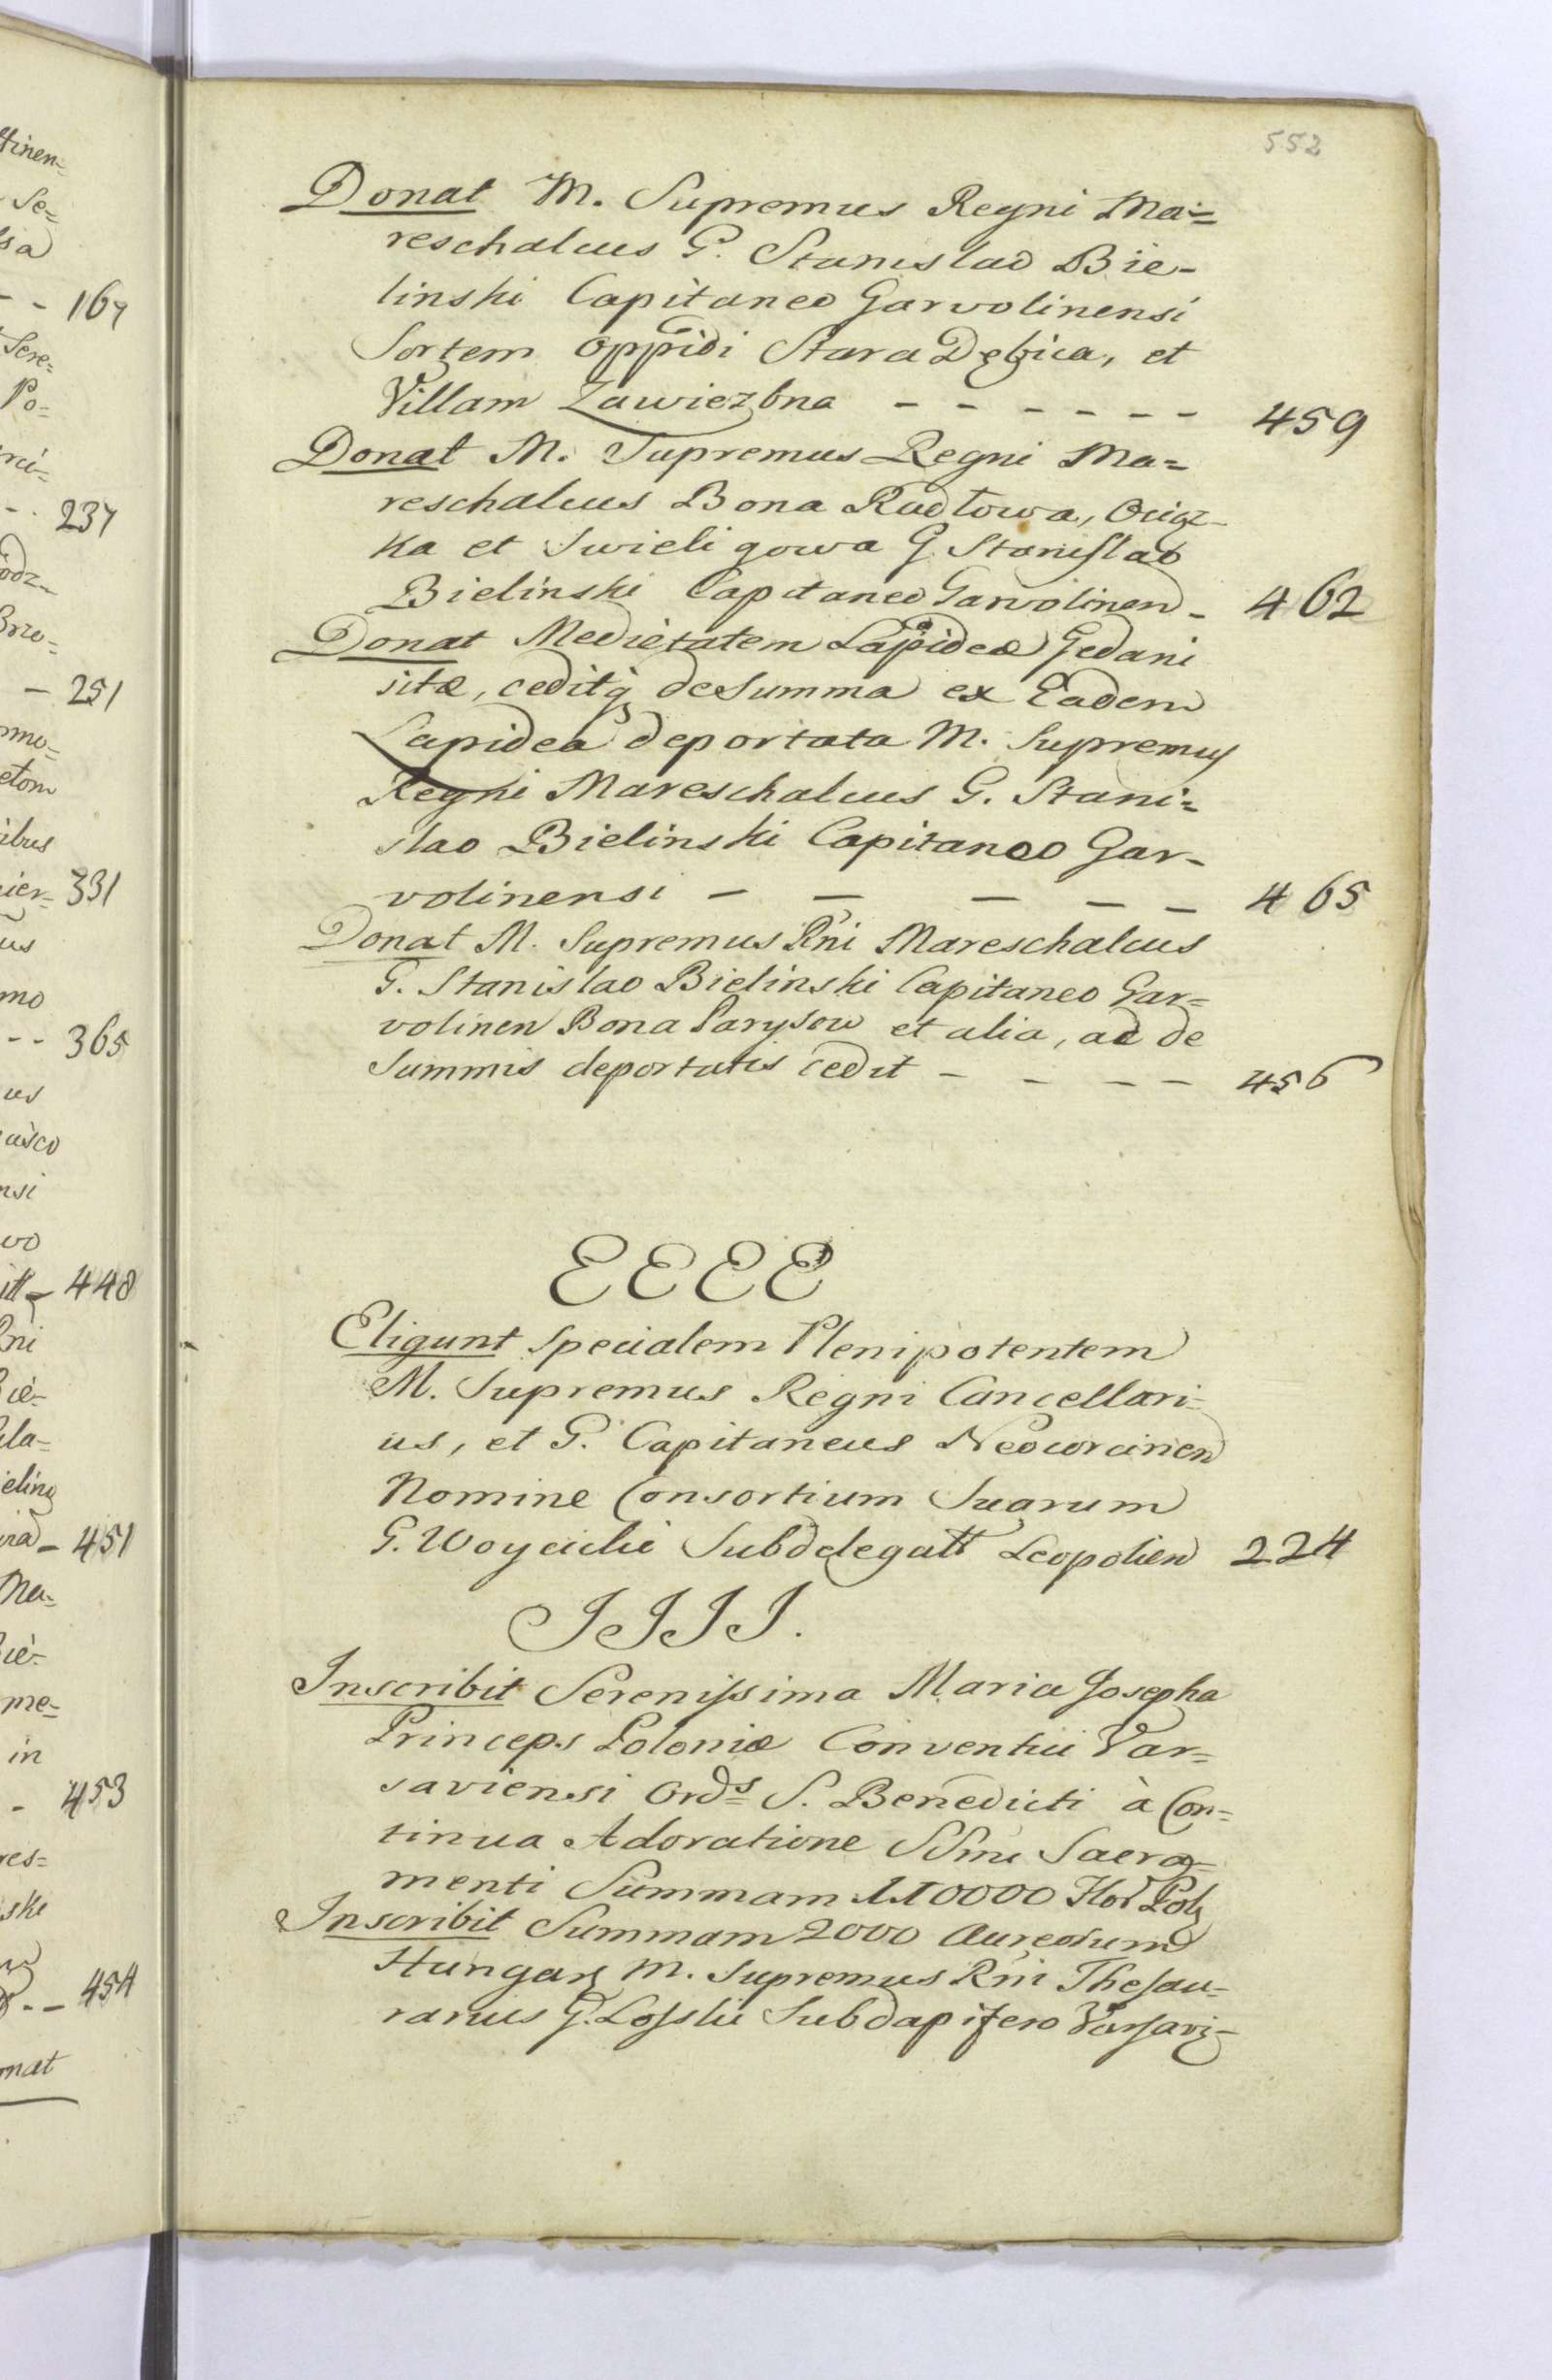 552
Donat M. Supremus Regni Ma=
reschalcus G. Stanislao Bie-
linski Capitaneo Garvolinensi
Sortem Oppidi Stara Dębica, et
Villam Zawiezbna - - - - - - 459
Donat M. Supremus Regni Ma=
reschalcus Bona Radłowa, Ociąz-
ka et Swieligowa G. Stanislao
Bielinski Capitaneo Garvolinen - 462
Donat Medietatem Lapideæ Gedani
sitæ, ceditq de Summa ex Eadem
Lapidea deportata M. Supremus
Regni Mareschalcus G. Stani=
slao Bielinski Capitaneo Gar-
volinensi - - - - - 465
Donat M. Supremus Rni Mareschalcus
G. Stanislao Bielinski Capitaneo Gar=
volinen Bona Parysow et alia, ac de
Summis deportatis cedit - - - - 456
EEEE
Eligunt Specialem Plenipotentem
M. Supremus Regni Cancellari=
us, et G. Capitaneus Neocorcinen
Nomine Consortium Suarum
G. Woycicki Subdelegatt Leopolien 224
IIII.
Inscribit Serenissima Maria Josepha
Princeps Poloniæ Conventui Var=
saviensi Ords S. Benedicti à Con=
tinua Adoratione SSmi Sacra=
menti Summam 110000 Flor Pol
Inscribit Summam 2000 Aureorum
Hungar M. Supremus Rni Thesau=
rarius G. Losski Subdapifero Varsavi-
167
237
251
331
365
448
451
453
454